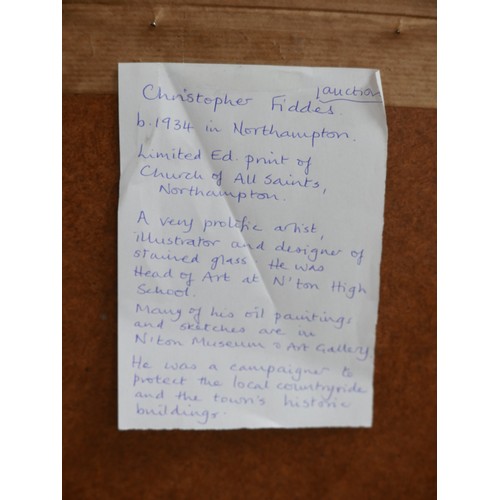 auction
Christopher Fiddes.
b.1934 in Northampton.
Limited Ed. print of
Church of All Saints,
Northampton.
A very prolific artist,
illustrator and designer of
stained glass. He was
Head of Art at N'ton High
School.
Many of his oil paintings
and sketches are in
N'ton Museum & Art Gallery
He was a campaigner to
protect the local countryside
and the town's historic
buildings.